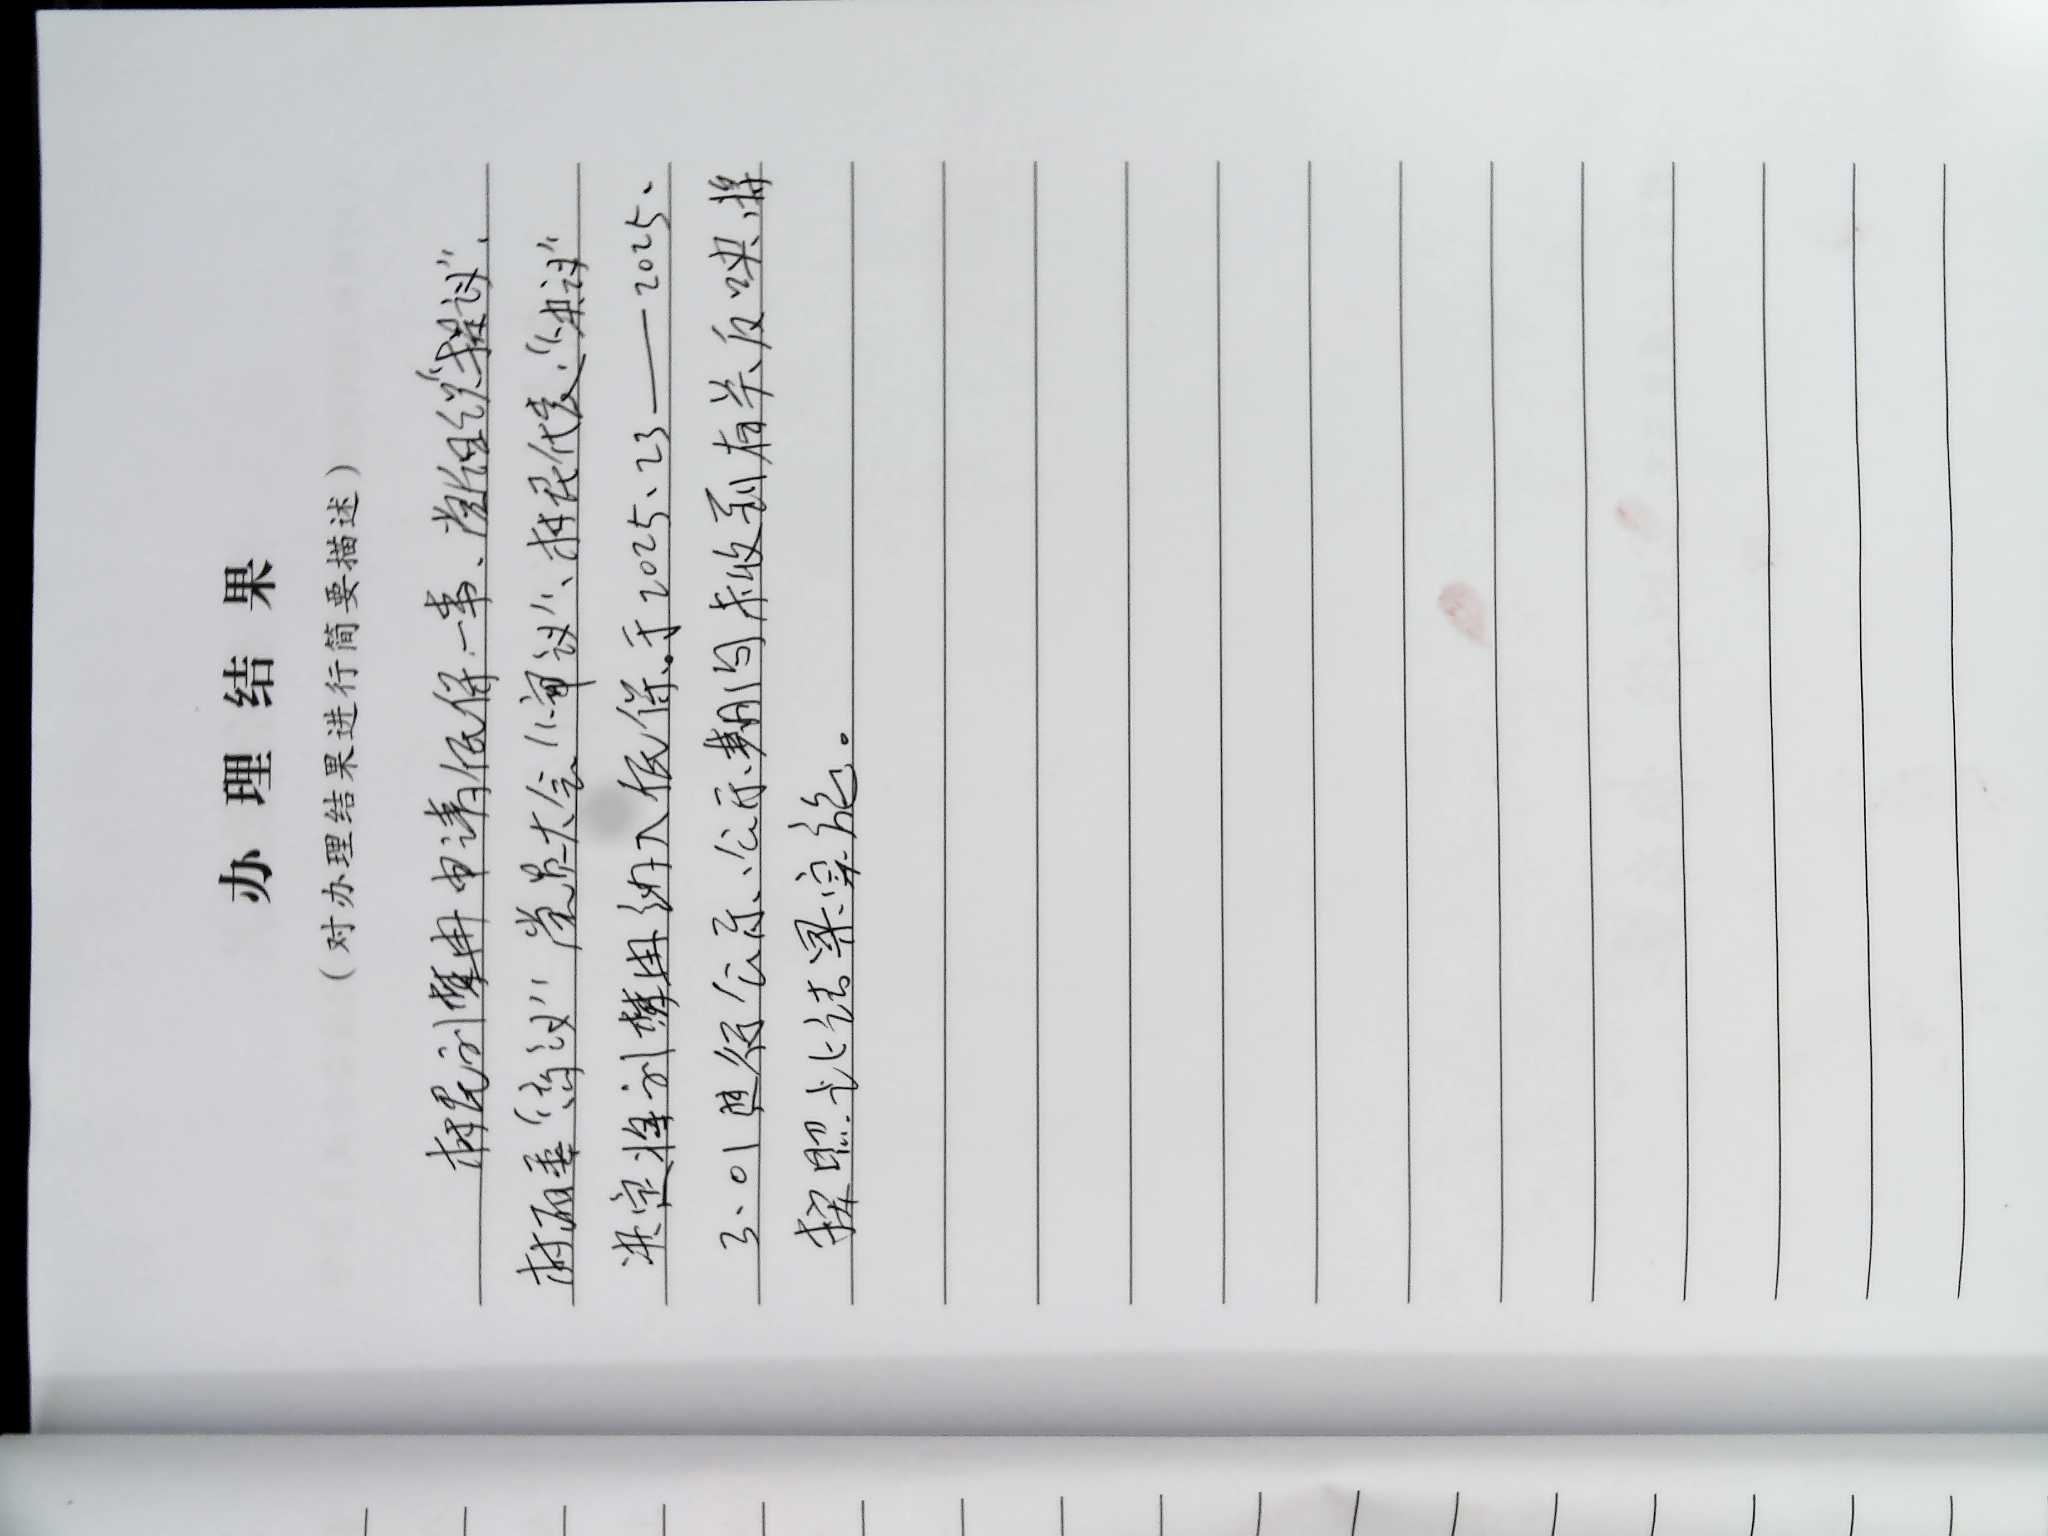 办理结果
（对办理结果进行简要描述）
村民刘梦冉申请低保一事、党组织“提议”、
村两委“商议”党员大会“审议”、村民代表“决议”
决定将刘梦冉纳入低保、于2025、23——2025、
3、01进行公示、公示期间未收到有关反映、将
按照办法实施。